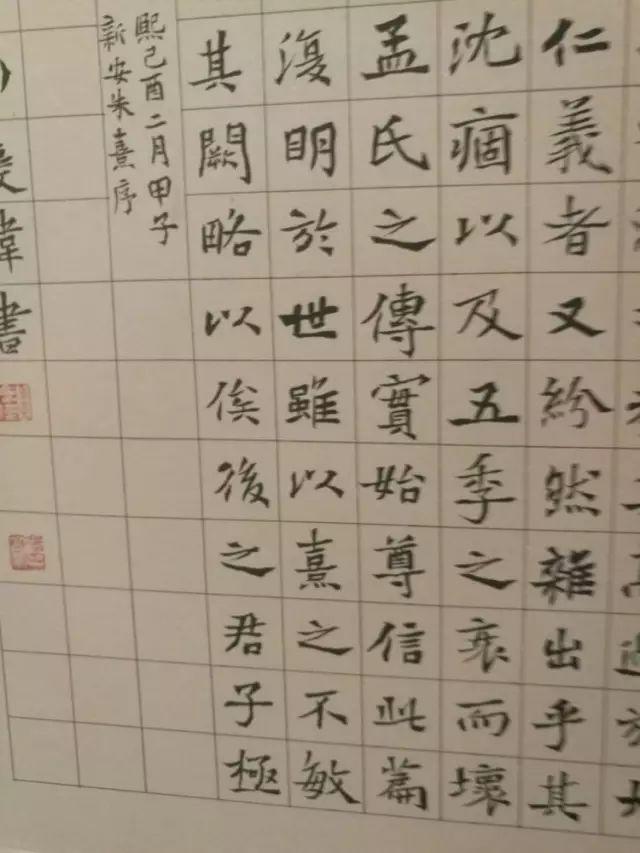 仁義者又紛然雜出乎其
沈痼以及五季之衰而壞
孟氏之傳實始尊信此篇
復明於世雖以熹之不敏
其闕略以俟後之君子極
熙己酉二月甲子
新安朱熹序
韋書